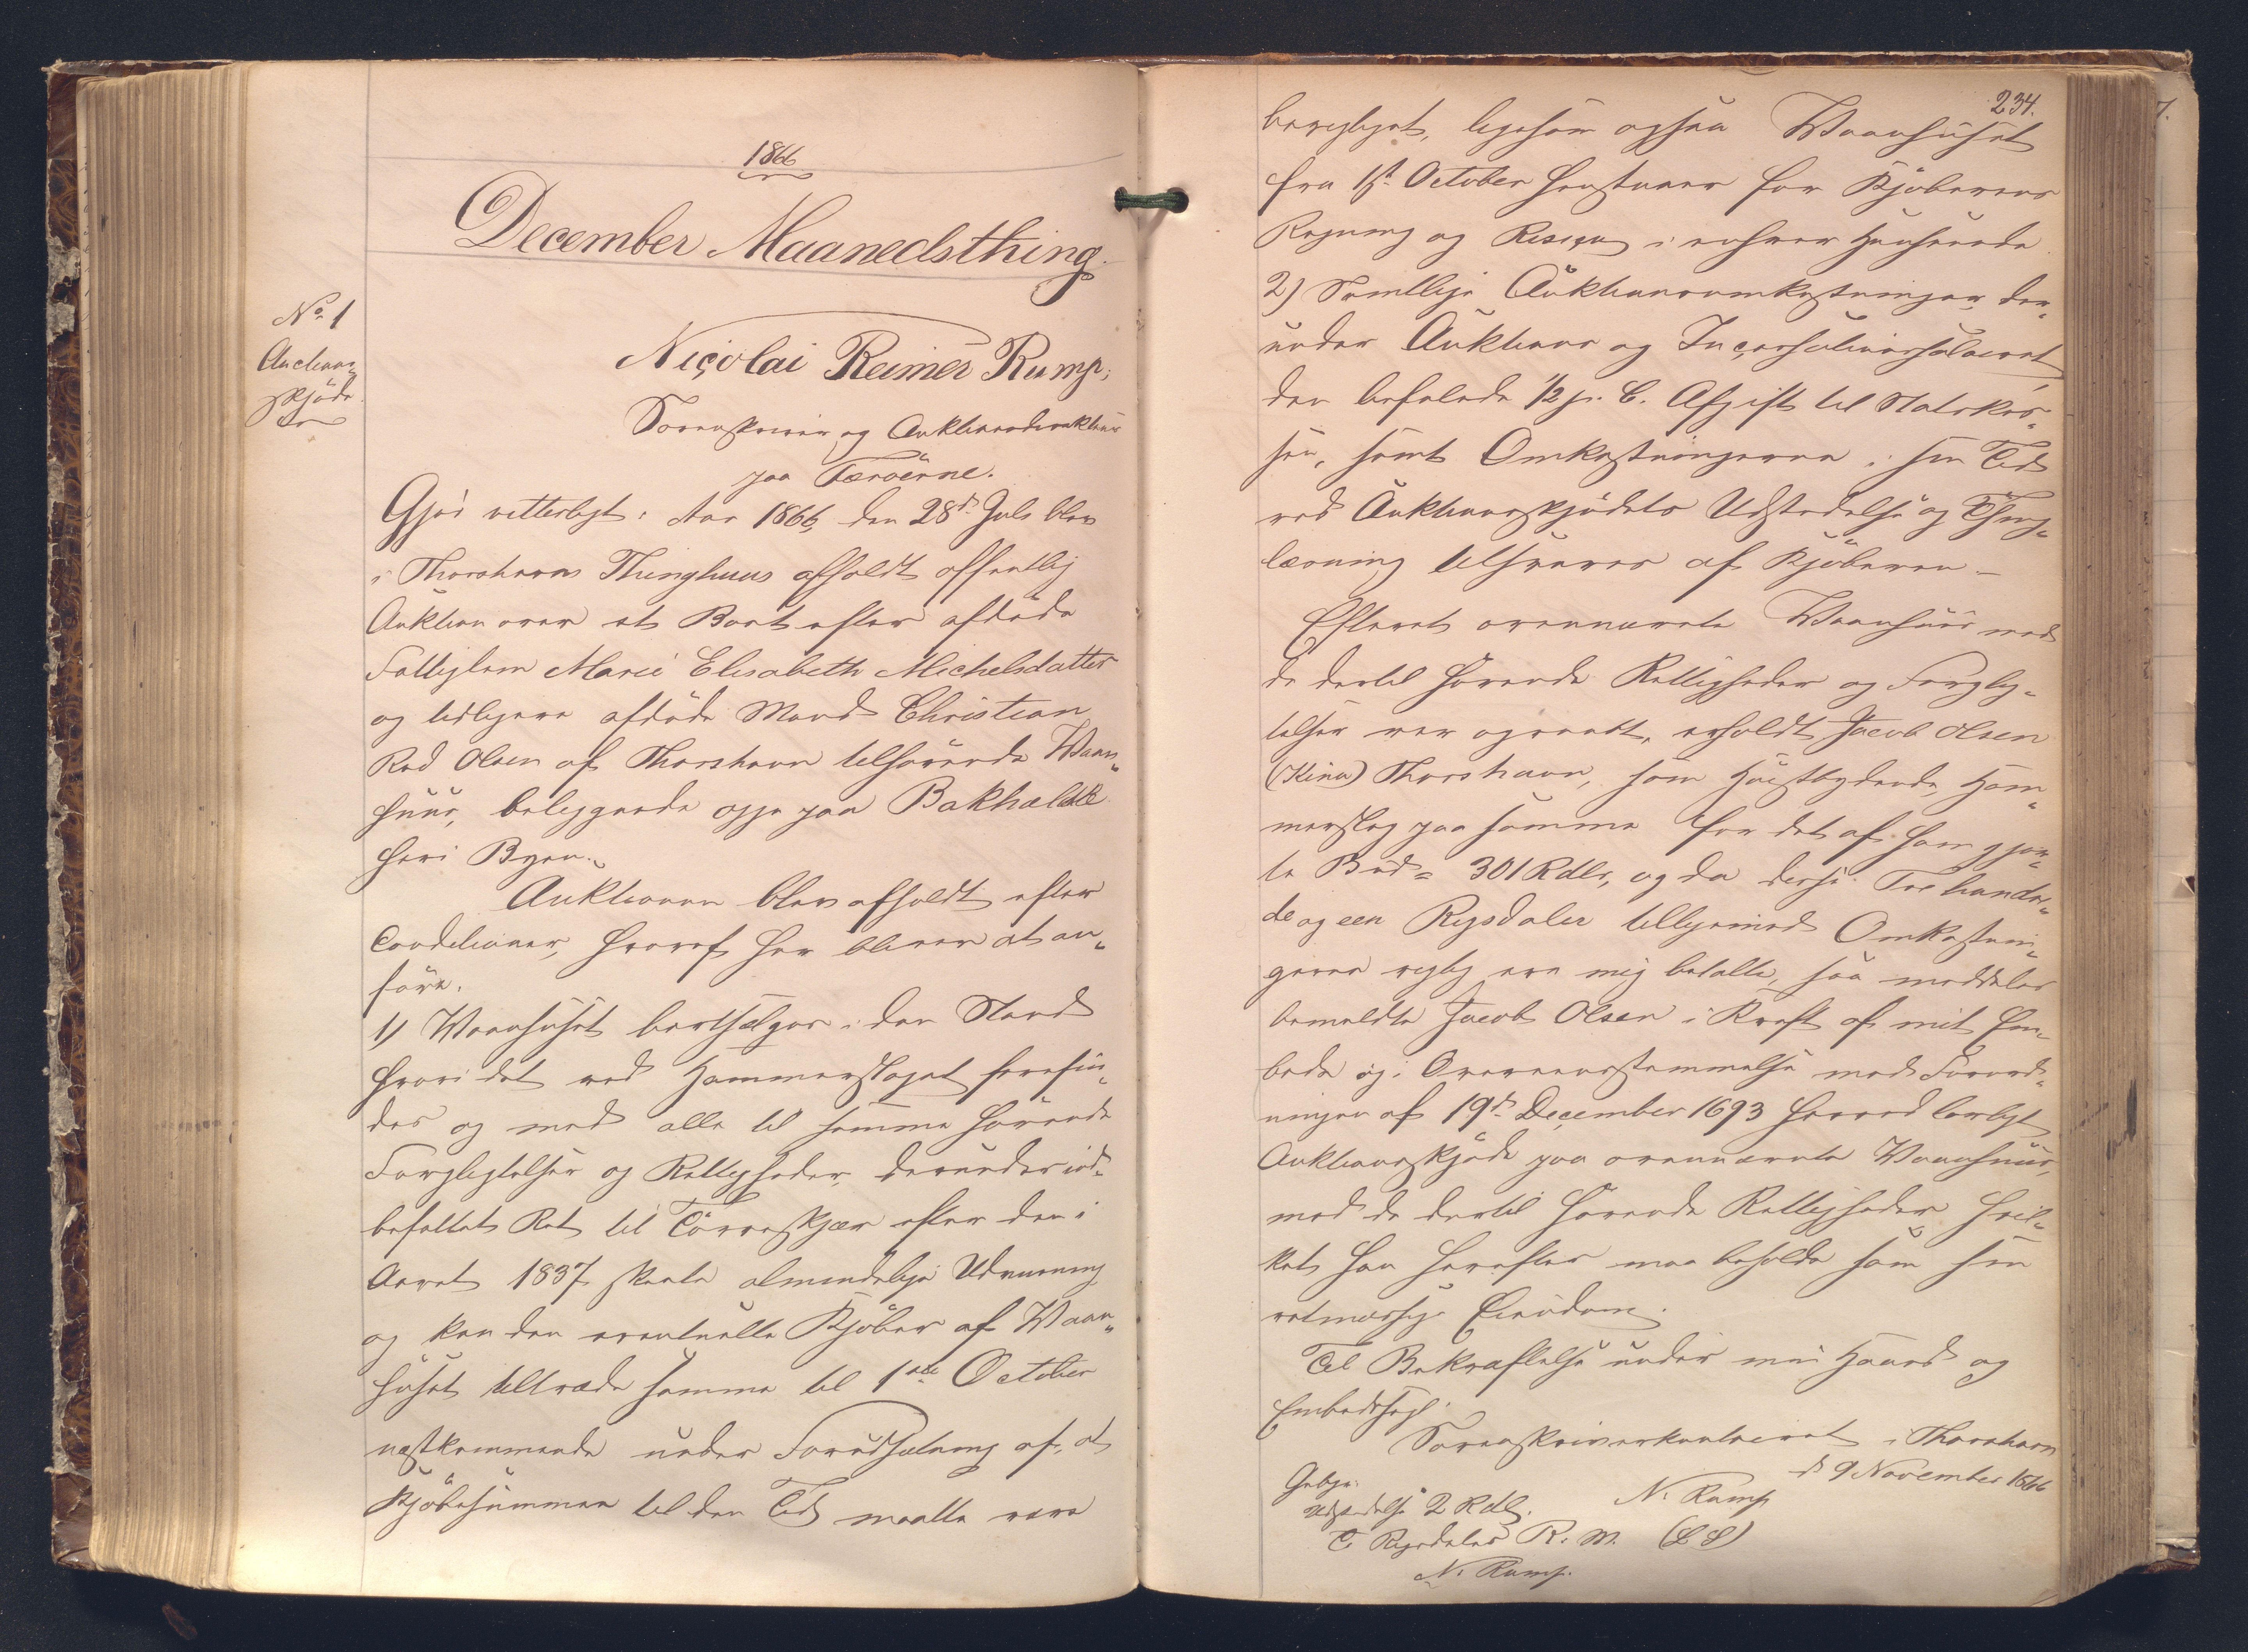 1866
December Maanedsthing.
No 1
Auctions
skjöde
Nicolai Reimer Rump,
Sorenskriver og Auktionsdirekteur
paa Færöerne.
Gjör vitterligt: Aar 1866, den 28d Juli blev
i Thorshavns Thinghuus afholdt offentlig
Auktion over et Boet efter afdöde
Fattiglem Marie Elisabeth Michelsdatter
og tidligere afdöde Mand Christian
Rod Olsen af Thorshavn tilhörende Vaan„
huus, beliggende oppe paa Bakhælde
heri Byen.
Auktionen blev afholdt efter
Conditioner, hvoraf her bliver at an„
före.
1) Vaanhuset bortsælges i den Stand
hvori det ved Hammerslaget forefin„
des og med alle til samme hörende
Forpligtelser og Rettigheder, derunder ind„
befattet Ret til Törveskjær efter den i
Aaret 1837 skeete almindelige Udviisning
og kan den eventuelle Kjöber af Vaan„
huset tiltræde samme til 1ste October
nestkommende under Forudsætning af, at
Kjöbesummen til den Tid maatte være
234.
berigtiget, ligesom ogsaa Vaanhuset
fra 1st October henstaaer for Kjöberens
Regning og Risico i enhver Henseende.
2) Samtlige Auktionsomkostninger, der„
under Auktions og Incassationssalairet
den befalede 1/2 p. C. Afgift til Statskas„
sen, samt Omkostningerne i sin Tid
ved Auktionsskjödets Udstedelse og Thing„
læsning tilsvares af Kjöberen.
Efterat ovennævnte Vaanhuus med
de dertil hörende Rettigheder og Forplig„
telser var opraabt, erholdt Jacob Olsen
(Kina) Thorshavn, som Höistbydende, Ham„
merslag paa samme for det af ham gjor„
te Bud = 301 Rdlr, og da disse Trehundre„
de og een Rigsdaler tilligemed Omkostnin„
gerne rigtig ere mig betalte, saa meddeles
bemeldte Jacob Olsen i Kraft af mit Em„
bede og i Overeensstemmelse med Forord„
ningen af 19d December 1693 herved lovligt
Auktionsskjöde paa ovennævnte Vaanhuus,
med de dertil hörende Rettigheder, hvil„
ket han herefter maa beholde som sin
retmæssige Eiendom.
Til Bekræftelse under min Haand og
Embedssegl.
Sorenskriverkontoiret i Thorshavn
d 9 November 1866
N. Rump
(L S)
Gebyr:
Udstedelse 2 Rdlr.
To Rigsdaler R. M.
N. Rump.